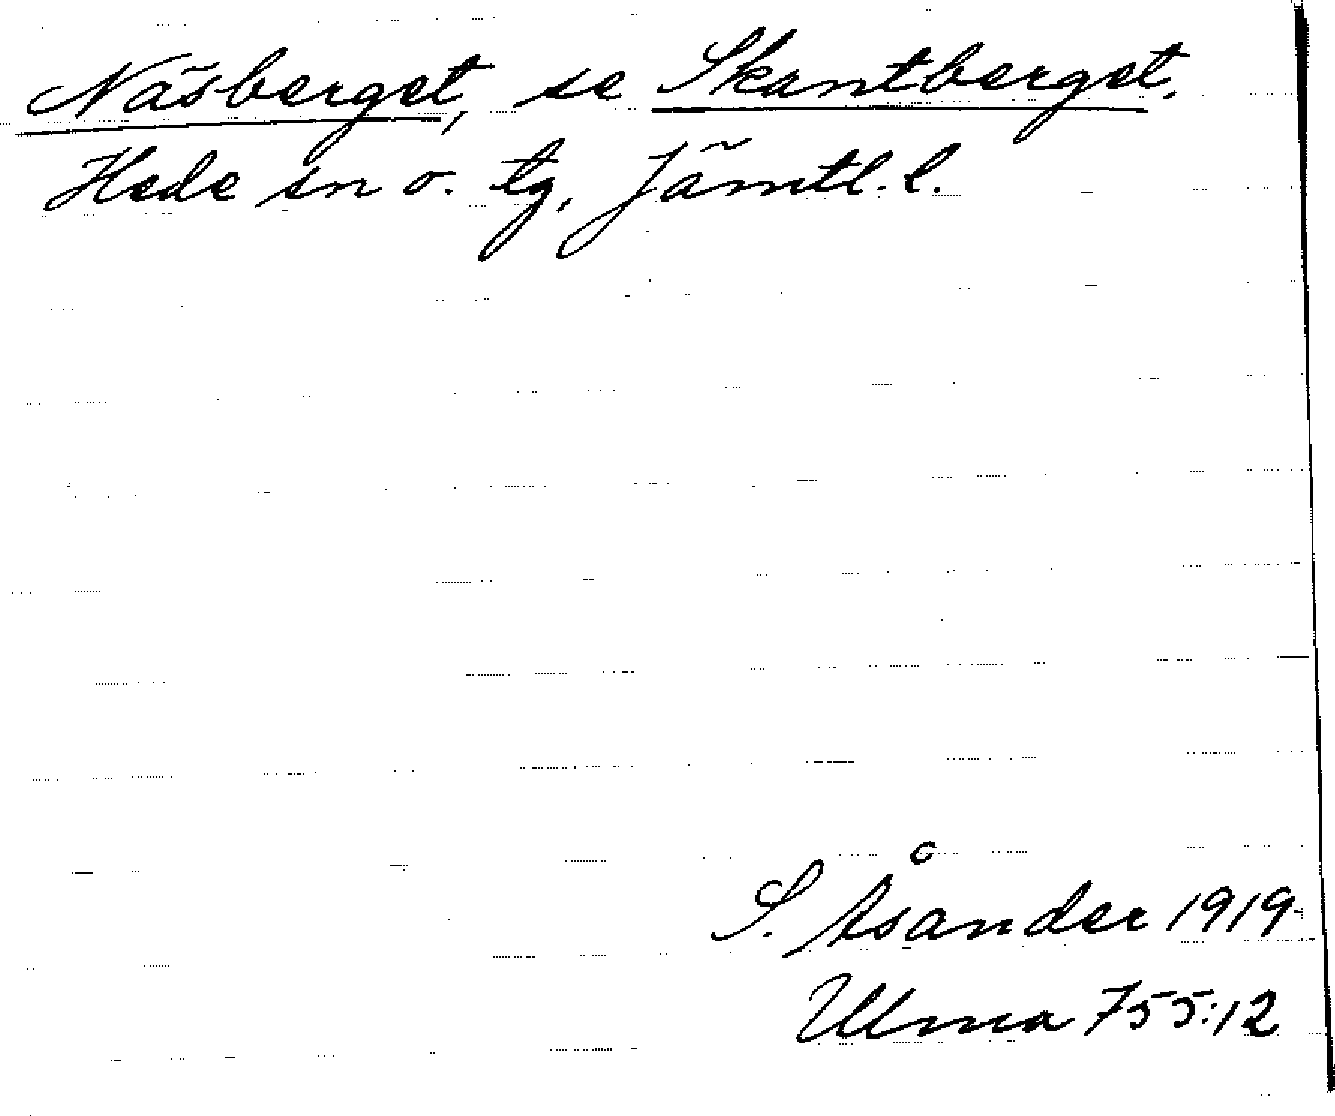 Näsberget, se Skantberget.
Hede sn o. tg, Jämtl. l.
S. Åsander 1919
Ulma 755:12